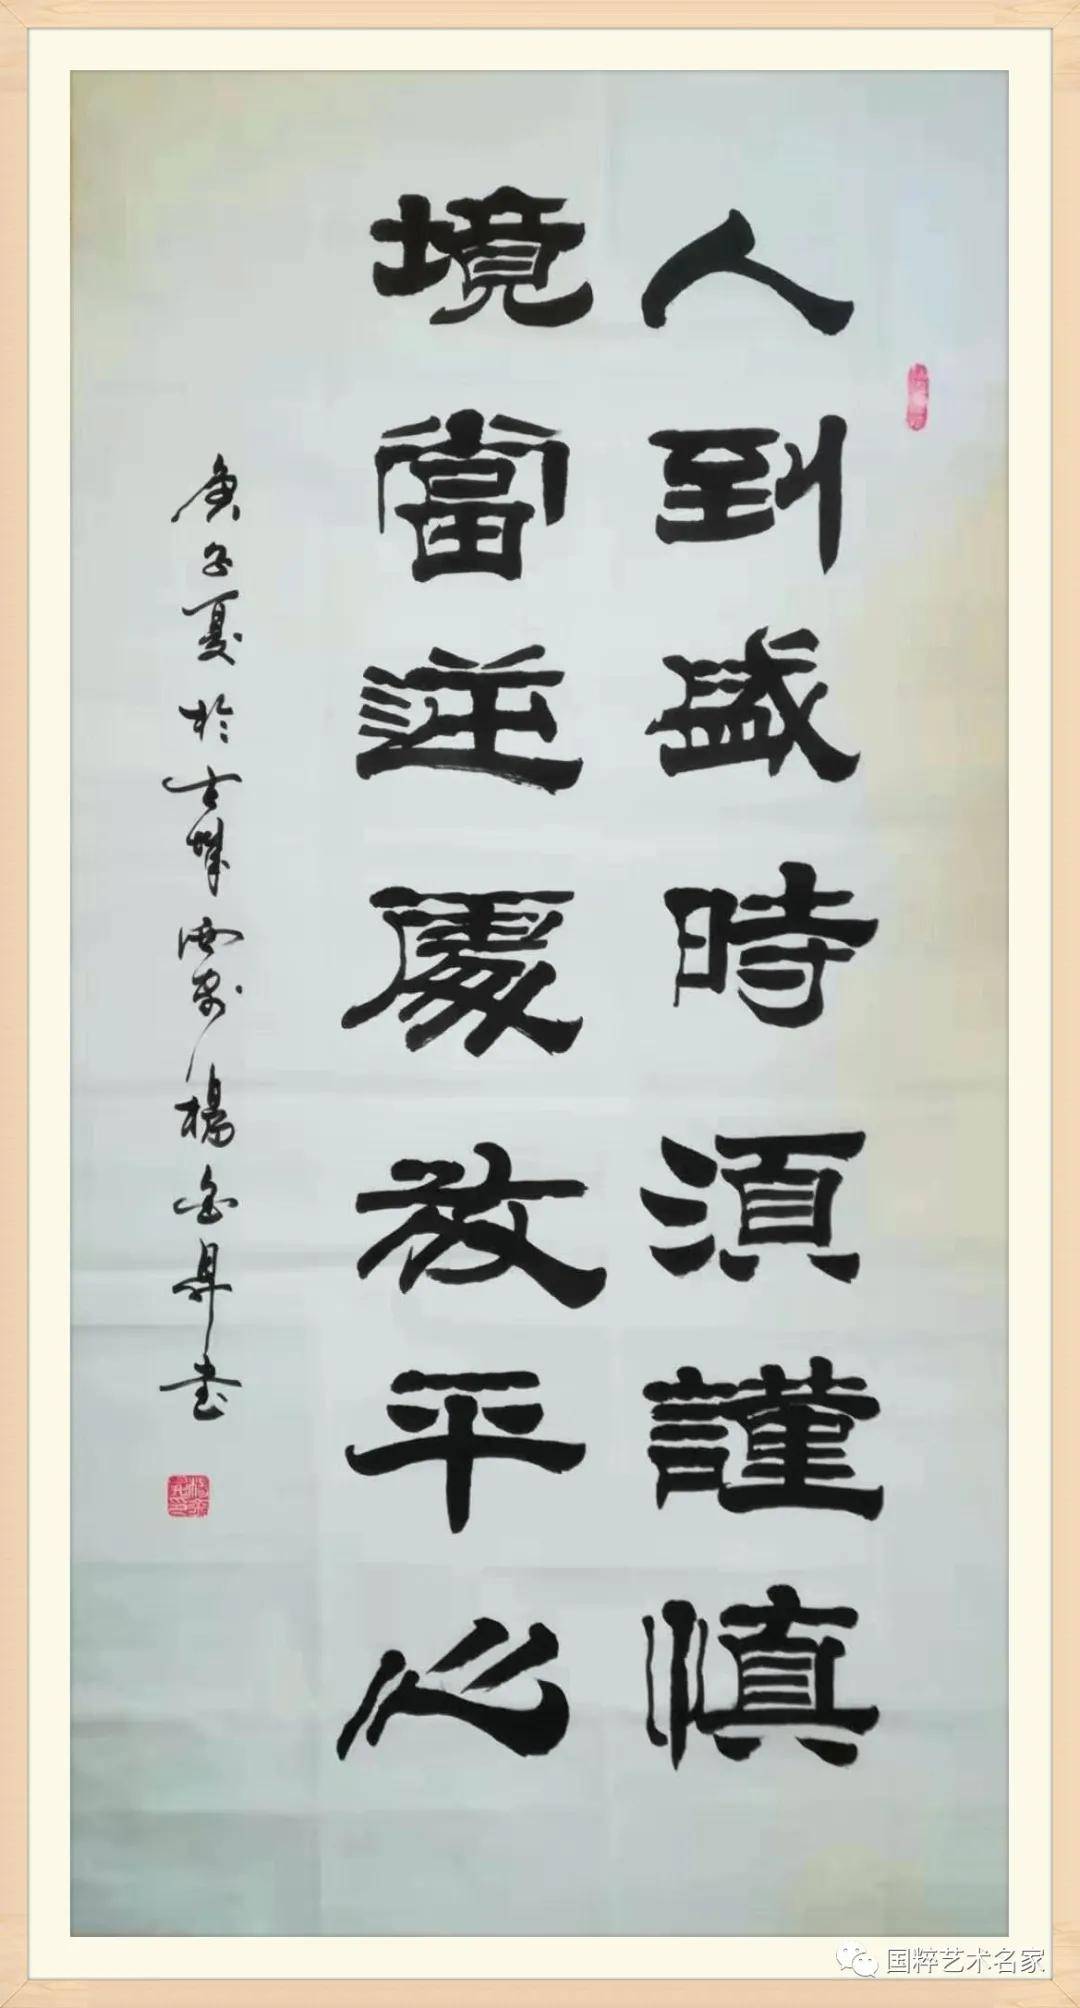 人到盛時須謹慎
境當逆處放平心
庚子夏於古城西安楊金鼎書
国粹艺术名家